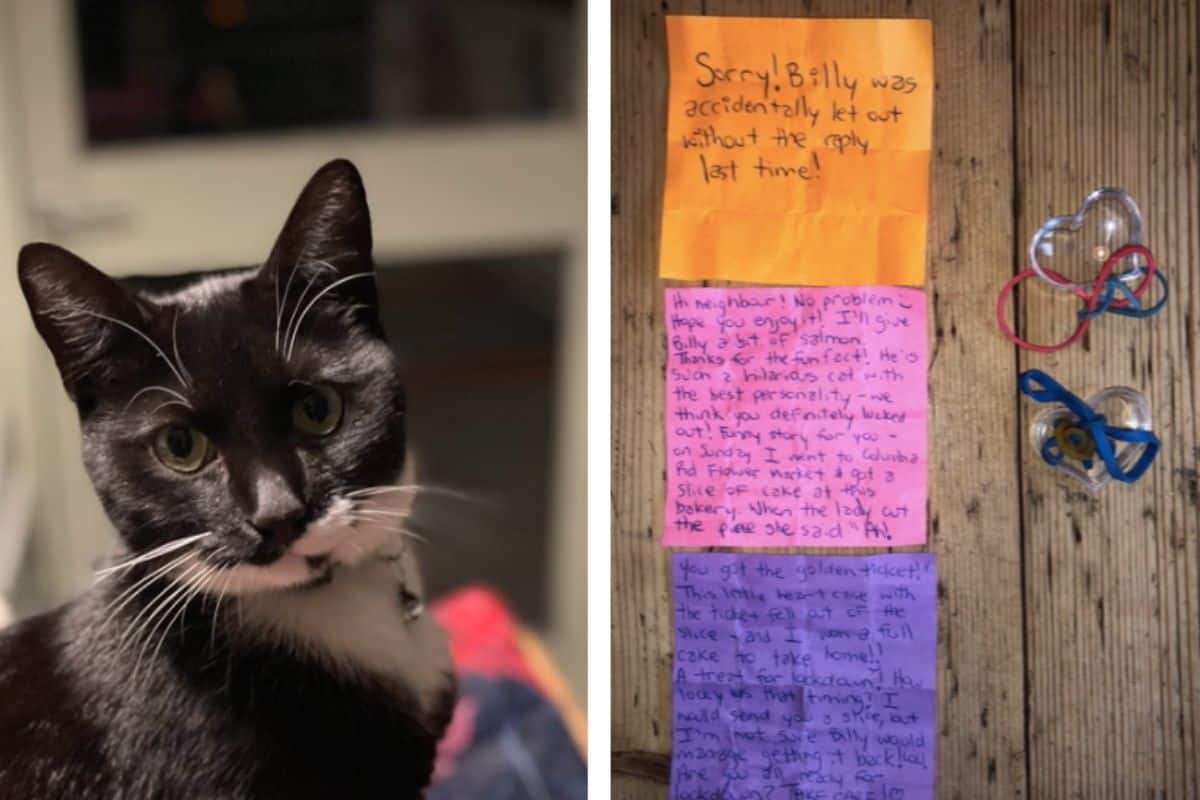 Sorry! Billy was
accidentally let out
without the reply
last time!
Hi neighbour! No problem
Hope you enjoy it! I'll give
Billy a bit of salmon.
Thanks for the fun fact! He's
such a hilarious cat with
the best personality - we
think you definitely lucked
out! Funny story for you -
on Sunday I went to Columbia
Rd Flower Market & got a
slice of cake at this
bakery. When the lady cut
the piece she said "Ah!
You got the golden ticket!"
This little heart case with
the ticket fell out of the
slice - and I won a full
cake to take home!!
A treat for lockdown! How
lucky was that timing? I
would send you a slice, but
I'm not sure Billy would
manage getting it back!
Are you all ready for
lockdown? TAKE CARE!